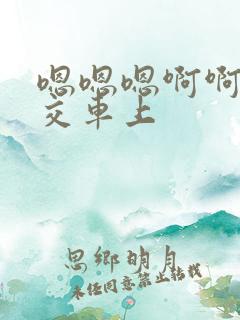 嗯嗯嗯啊啊
交车上
思乡明月
未任同意禁止转载